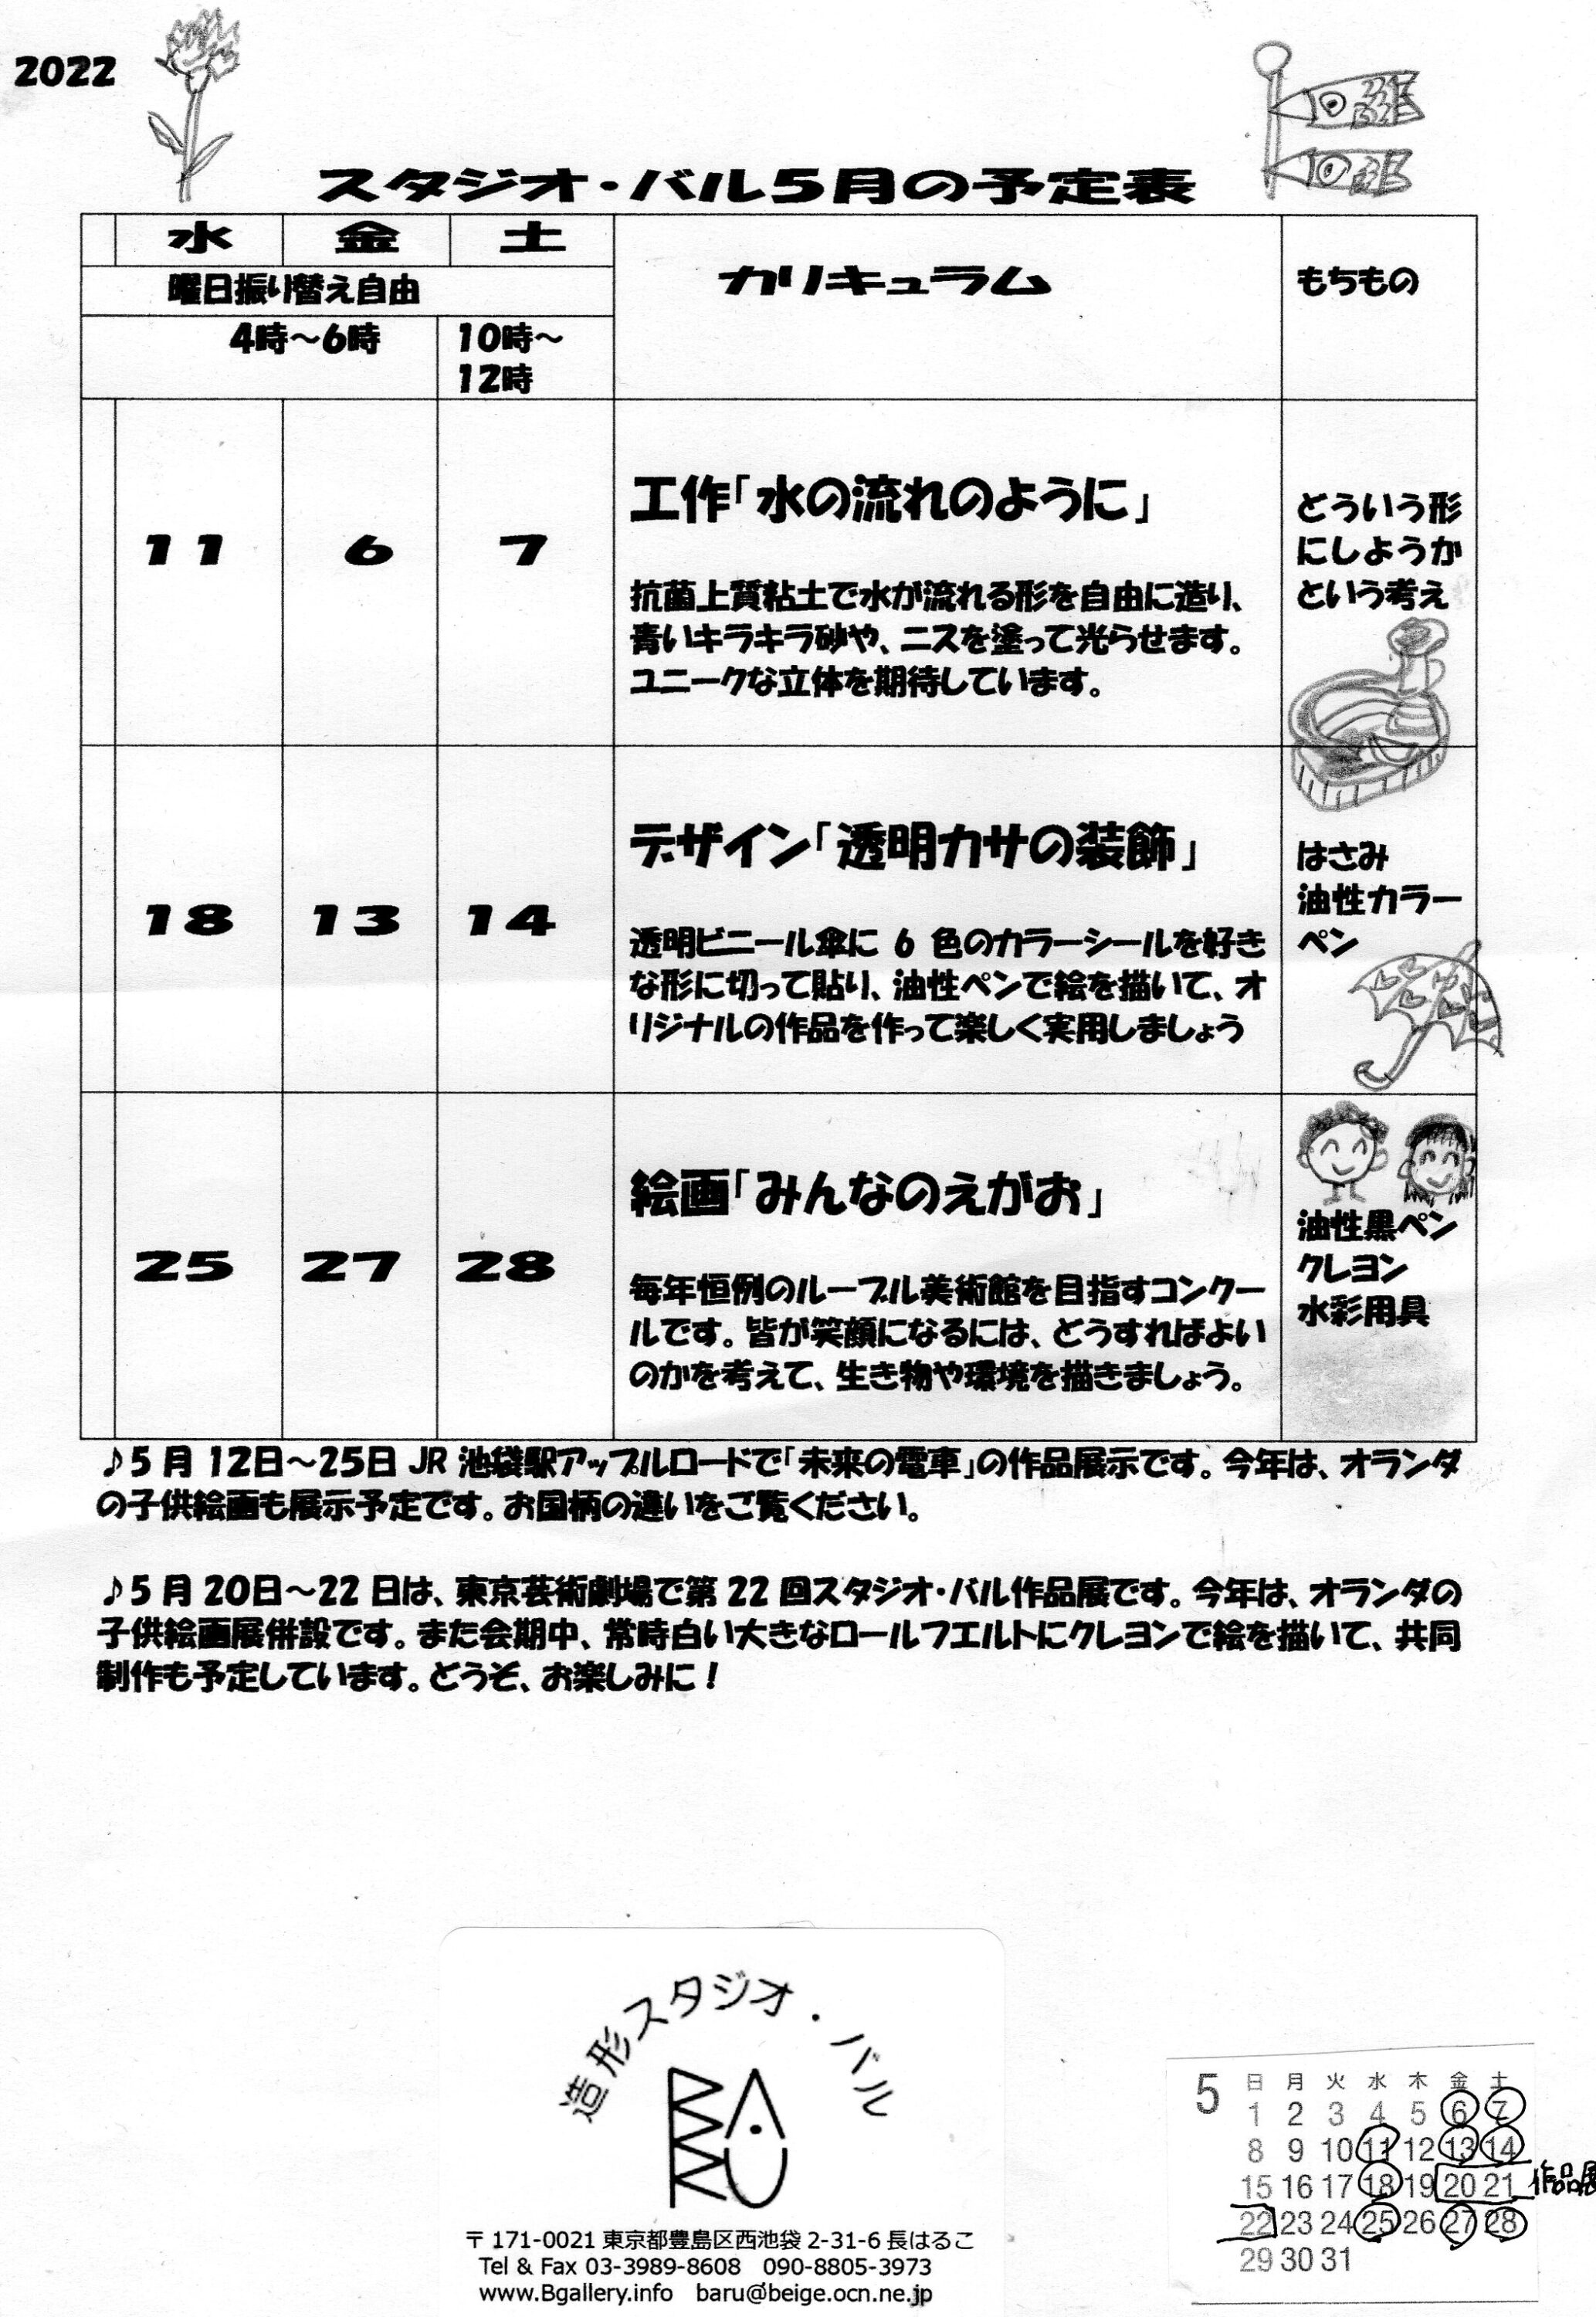 2022
スタジオ・バル5月の予定表
水 金 土
カリキュラム
もちもの
曜日振り替え自由
4時～6時
10時～
12時
11 6 7
工作「水の流れのように」
抗菌上質粘土で水が流れる形を自由に造り、
青いキラキラ砂や、ニスを塗って光らせます。
ユニークな立体を期待しています。
どういう形
にしようか
という考え
18 13 14
デザイン「透明カサの装飾」
透明ビニール傘に 6 色のカラーシールを好き
な形に切って貼り、油性ペンで絵を描いて、オ
リジナルの作品を作って楽しく実用しましょう
はさみ
油性カラー
ペン
25 27 28
絵画「みんなのえがお」
毎年恒例のルーブル美術館を目指すコンクー
ルです。皆が笑顔になるには、どうすればよい
のかを考えて、生き物や環境を描きましょう。
油性黒ペン
クレヨン
水彩用具
♪5 月 12日～25日 JR 池袋駅アップルロードで「未来の電車」の作品展示です。今年は、オランダ
の子供絵画も展示予定です。お国柄の違いをご覧ください。
♪5 月 20日～22 日は、東京芸術劇場で第 22 回スタジオ・バル作品展です。今年は、オランダの
子供絵画展併設です。また会期中、常時白い大きなロールフエルトにクレヨンで絵を描いて、共同
制作も予定しています。どうぞ、お楽しみに！
造形スタジオ・バル
BARU
〒171-0021 東京都豊島区西池袋 2-31-6 長はるこ
Tel & Fax 03-3989-8608 090-8805-3973
www.Bgallery.info baru@beige.ocn.ne.jp
5 日 月 火 水 木 金 土
1 2 3 4 5 6 7
8 9 10 11 12 13 14
15 16 17 18 19 20 21 作品展
22 23 24 25 26 27 28
29 30 31